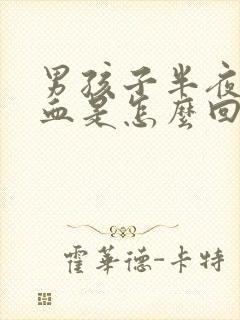 男孩子半夜
血是怎麼回
霍華德-卡特